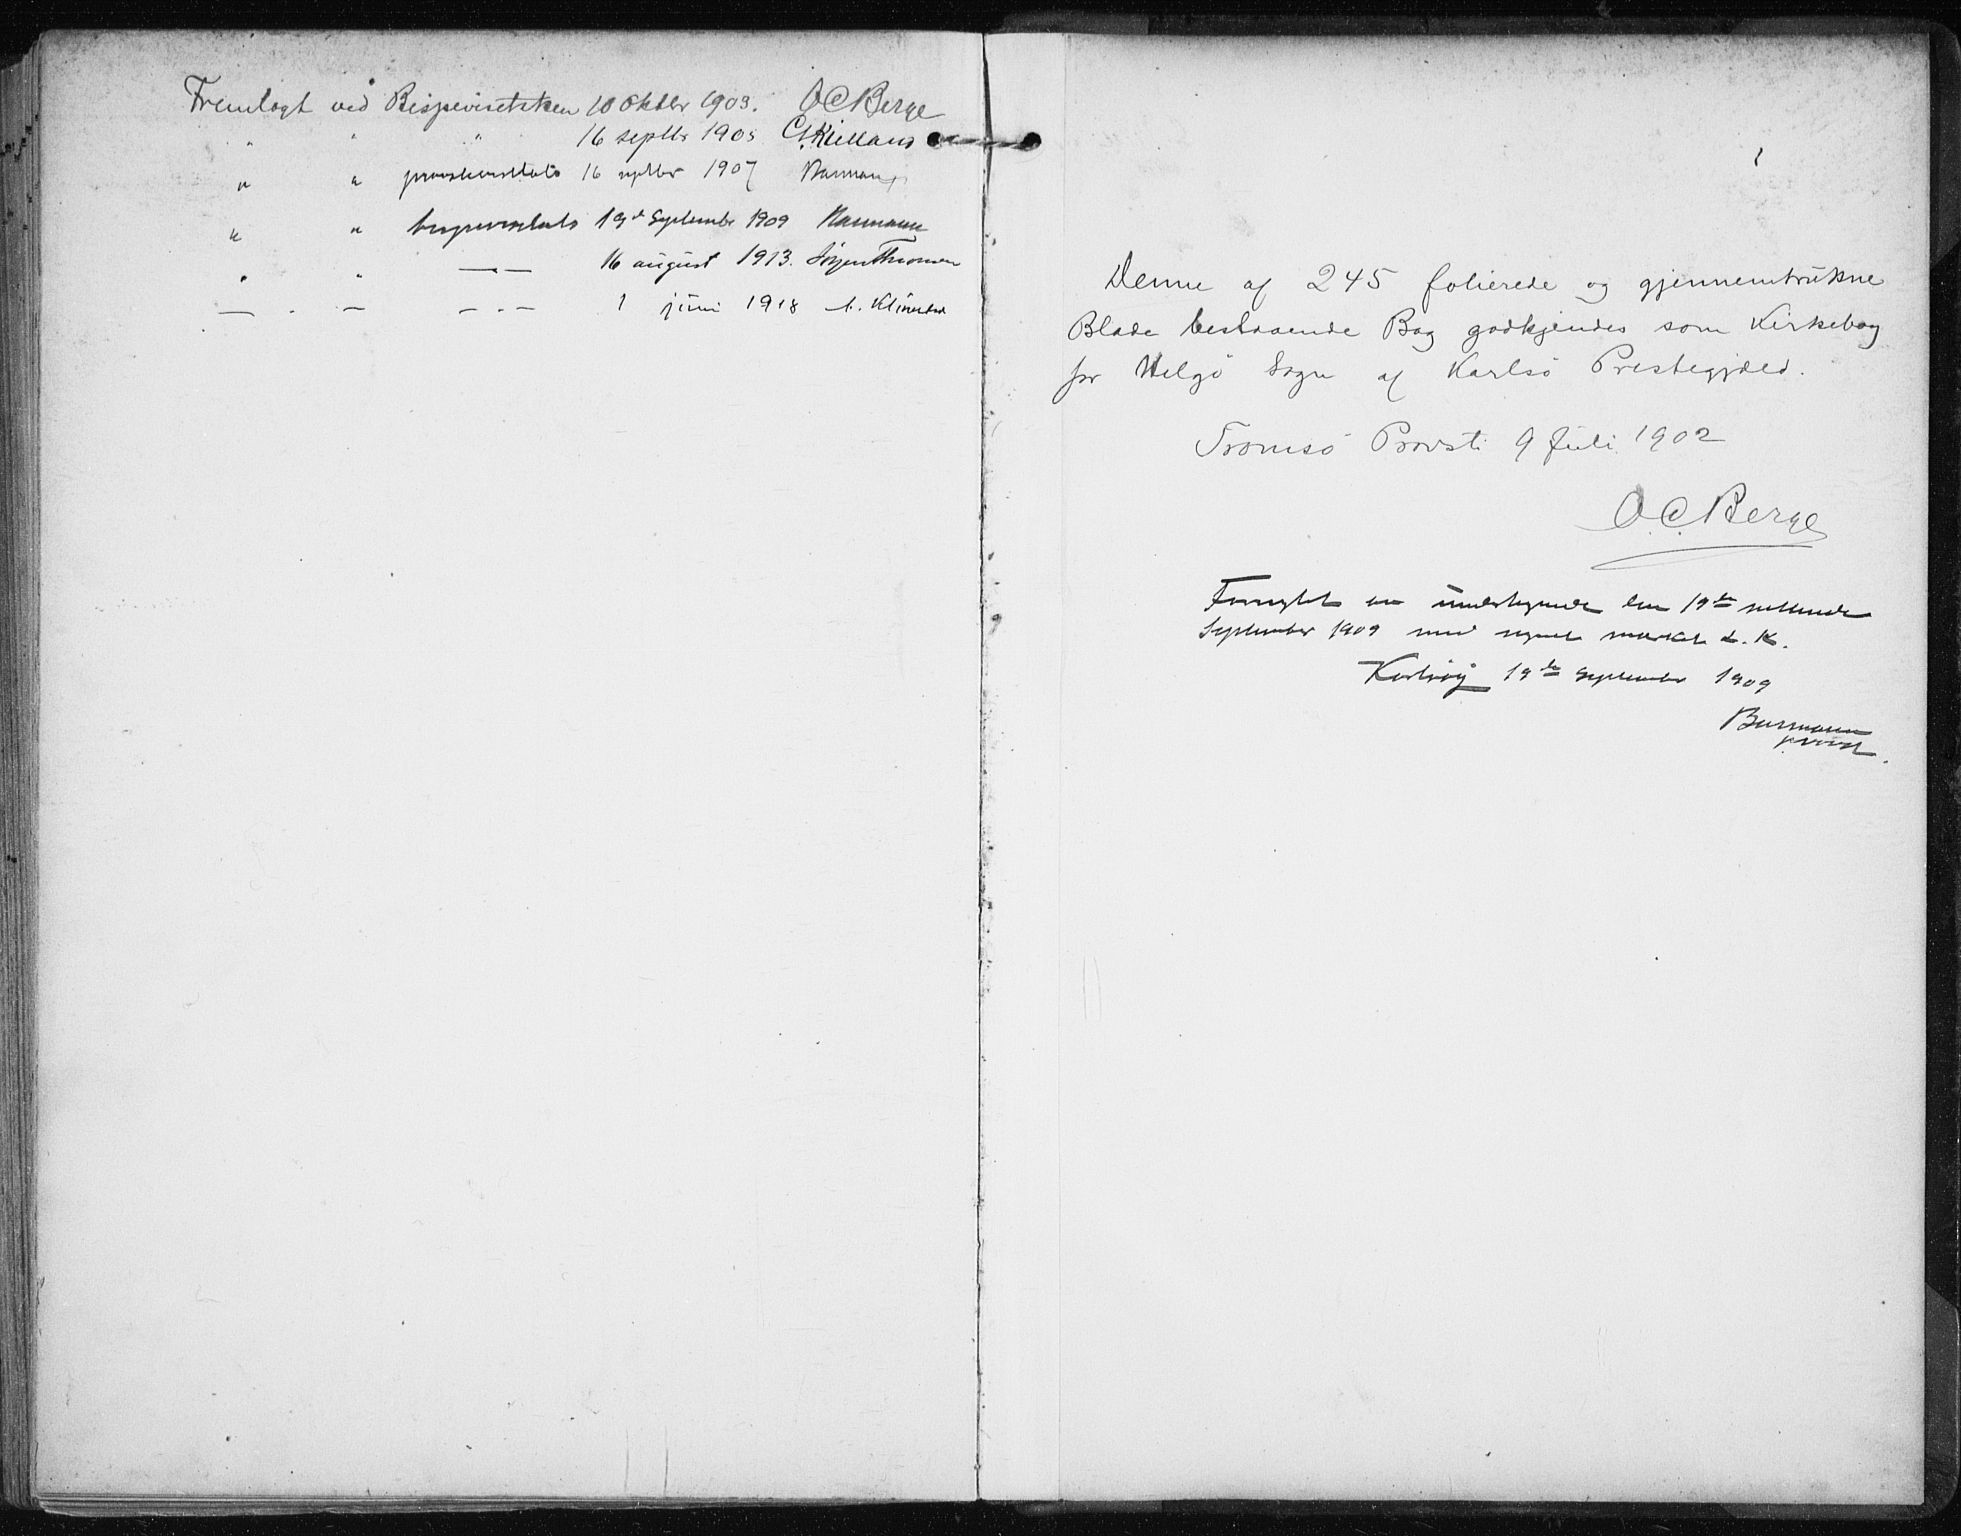 Fremlagt ved Bispevisitatsen 10 Oktbr 1903. O C Berge
" " " 16 septbr 1905 C. Kielland
" " provstevisitats 16 septbr 1907
" " bispevisitats 19de September 1909
" " — — 16 august 1913. Jörgen Thomsen
— . — — . — 1 juni 1918
1
Denne af 245 folierede og gjennemtrukne
Blade bestaaende Bog godkjendes som Kirkebog
for Helgö Sogn af Karlsö Prestegjæld.
Tromsö Provsti 9 Juli 1902
O. C. Berge
Fornyet av undertegnede den 19de
September 1909 med segnet merket
Karlsöy 19de September 1909
provst.